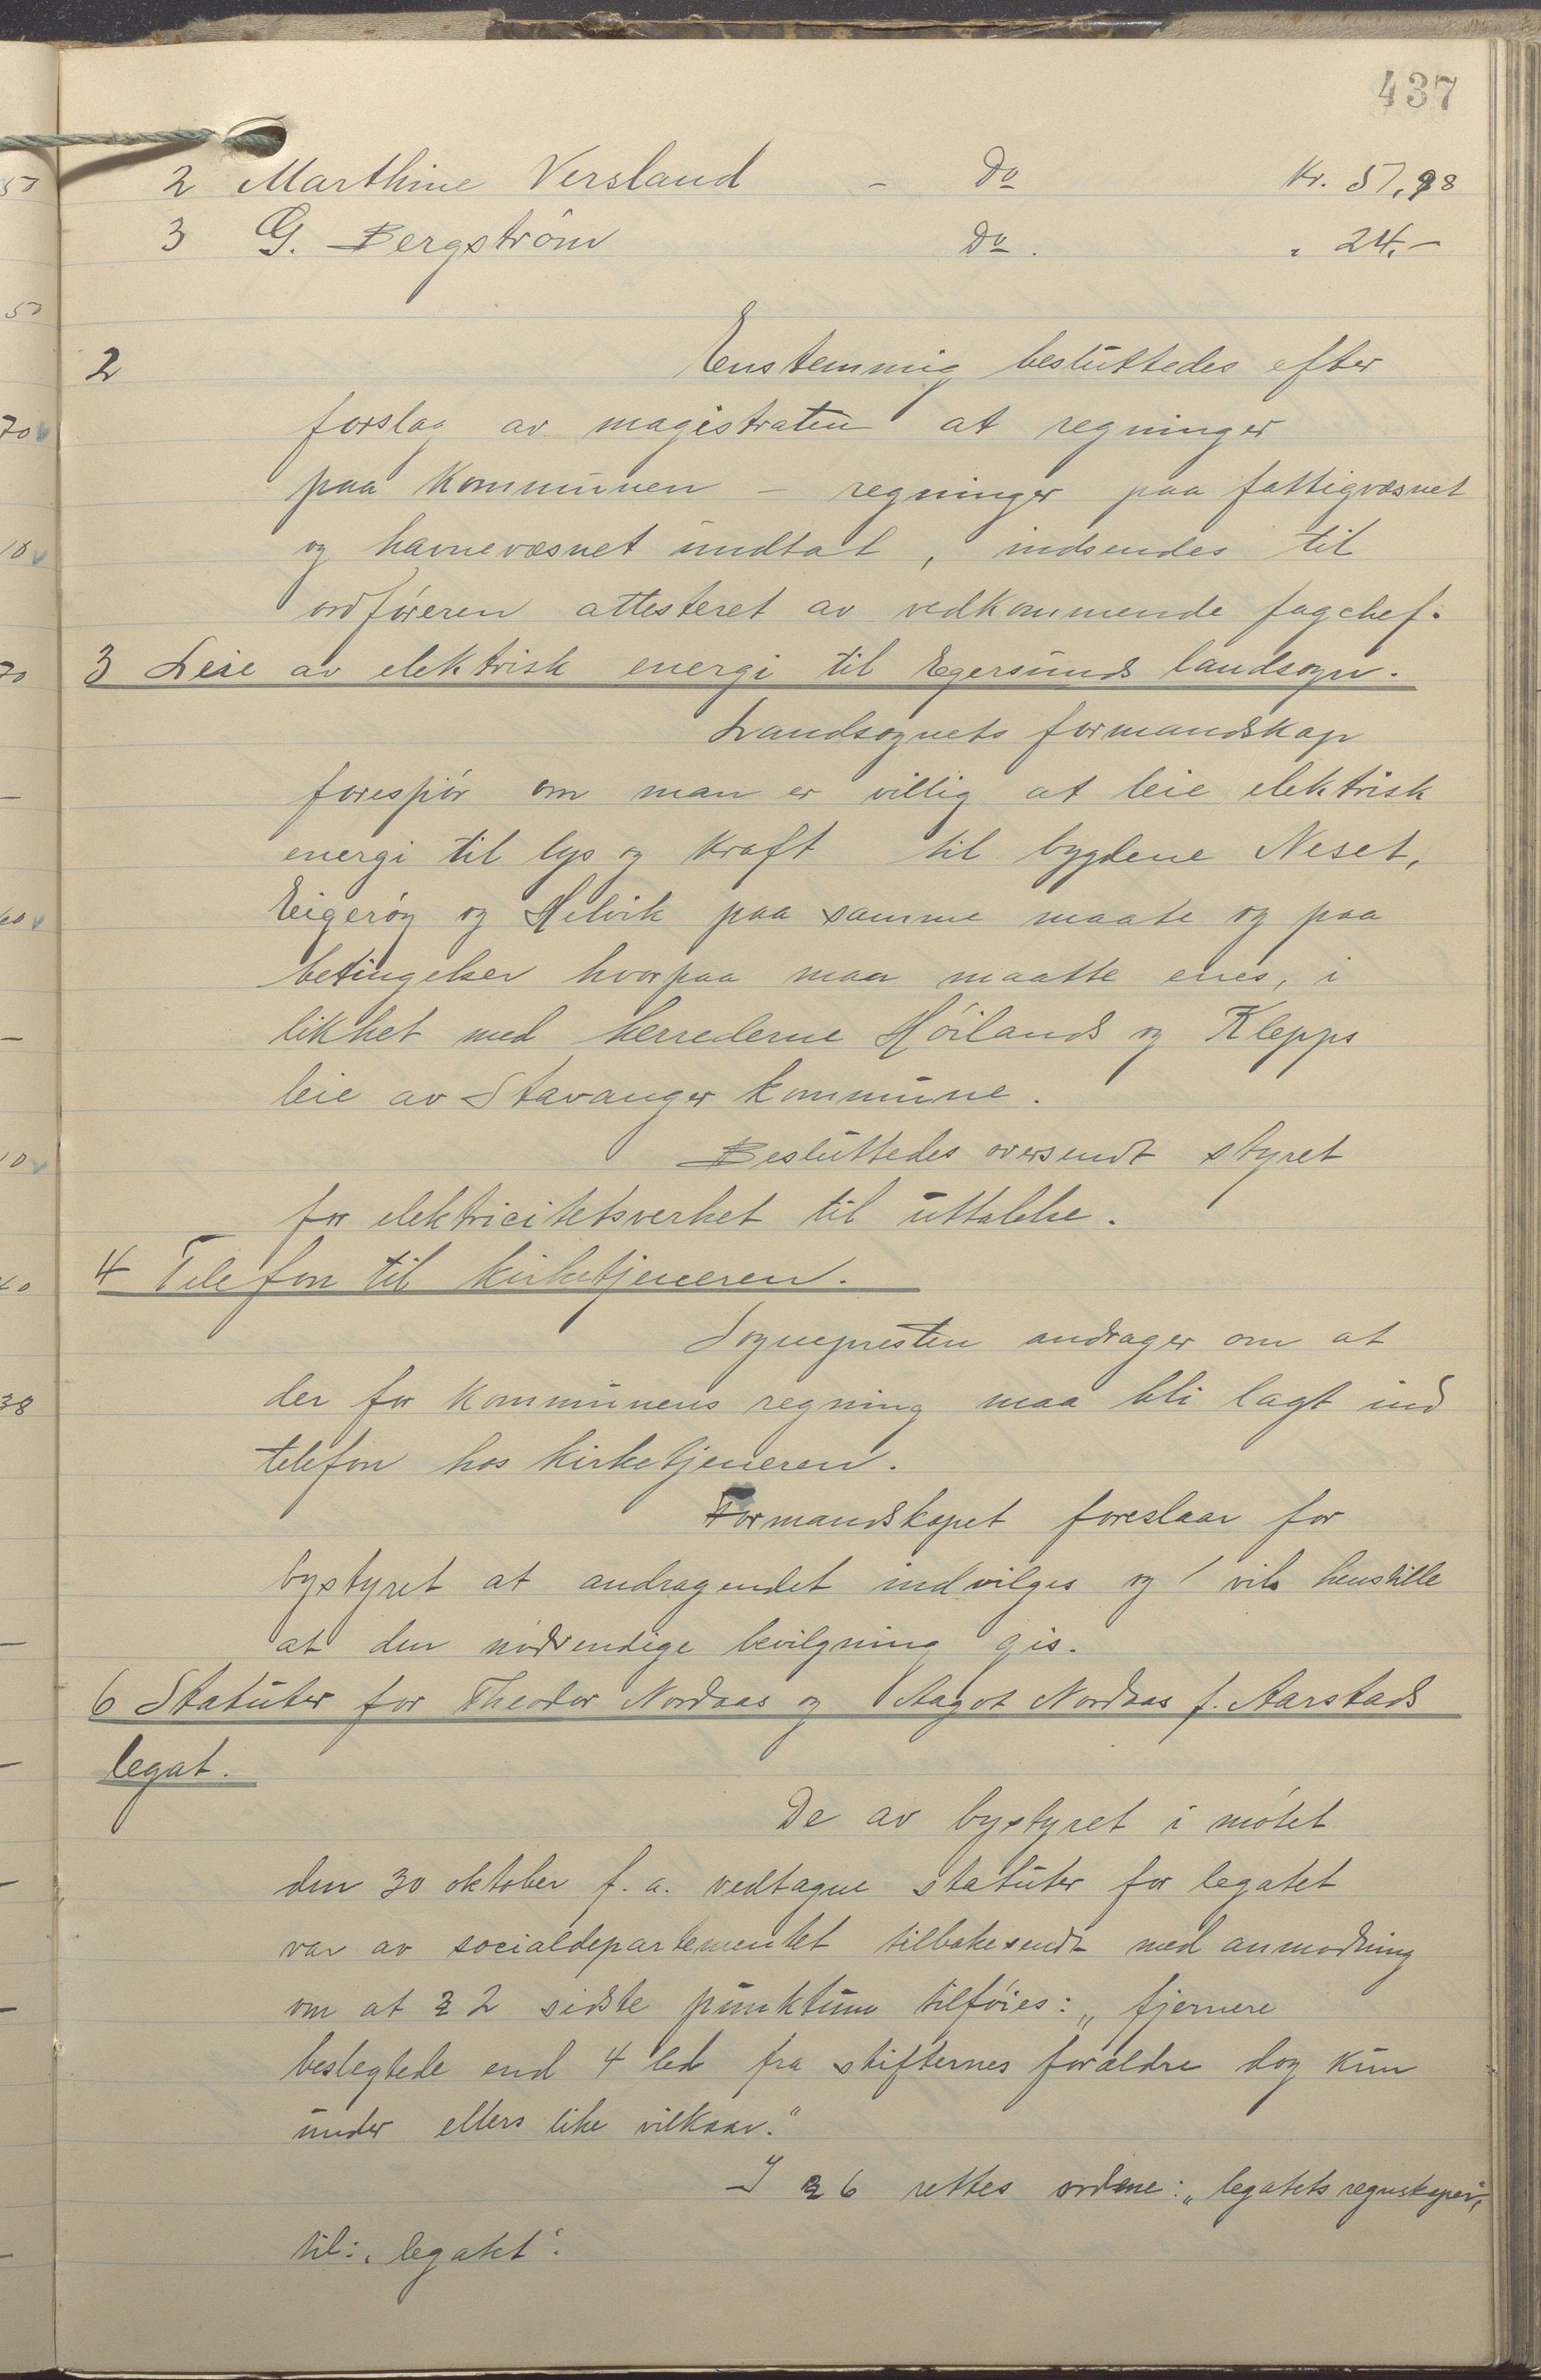 437
2 Marthine Versland - Do Kr. 57,98
3 G. Bergström Do. " 24,-
2 Enstemmig besluttedes efter
forslag av magistraten at regninger
paa kommunen - regninger paa fattigvæsnet
og havnevæsnet undtat, indsendes til
ordföreren attesteret av vedkommende fagchef.
3 Leie av elektrisk energi til Egersunds landsogn.
Landsognets formandskap
forespör om man er villig at leie elektrisk
energi til lys og kraft til bygdene Neset,
Eigeröy og Helvik paa samme maate og paa
betingelser hvorpaa man maatte enes, i
likhet med herrederne Höilands og Klepps
leie av Stavanger kommune.
Besluttedes oversendt styret
for elektricitetsverket til uttalelse.
4 Telefon til kirketjeneren.
Sognepresten andrager om at
der for kommunens regning maa bli lagt ind
telefon hos kirketjeneren.
Formandskapet foreslaar for
bystyret at andragendet indvilges og vil henstille
at den nödvendige bevilgning gis.
6 Statuter for Theodor Nordaas og Aagot Nordaas f. Aarstads
legat.
De av bystyret i mötet
den 30 oktober f. a. vedtagne statuter for legatet
var av socialdepartementet tilbakesendt med anmodning
om at § 2 sidste punktum tilföies: „fjernere
beslegtede end 4 led fra stifternes forældre dog kun
under ellers like vilkaar."
I § 6 rettes ordene: „legatets regnskaper",
til: „legatet".